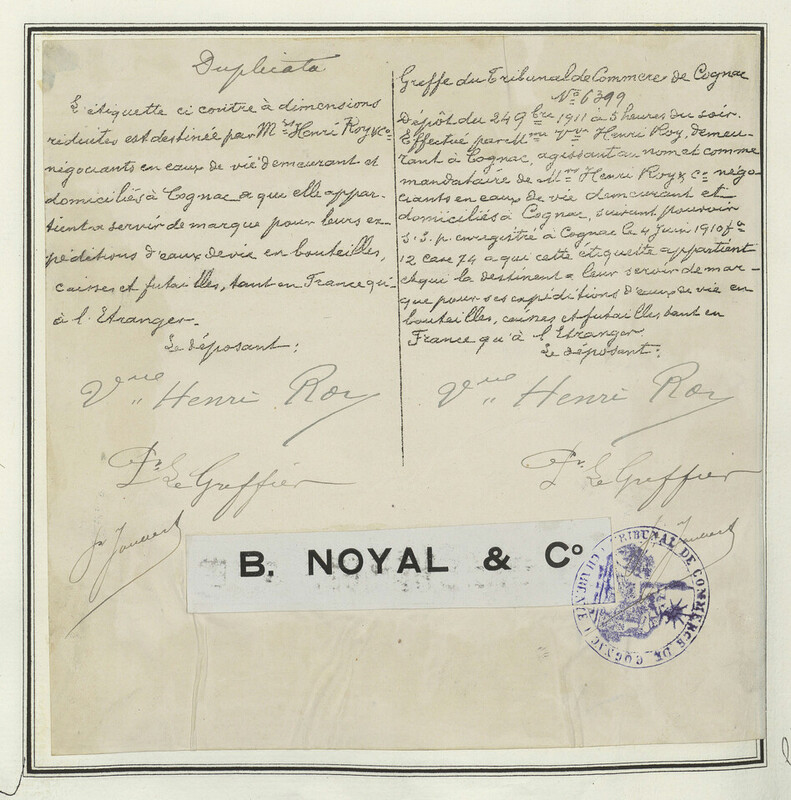 Duplicata
L'étiquette ci contre à dimensions
réduites est destinée par Mrs Henri Roy & Co
négociants en eaux de vie demeurant et
domiciliés à Cognac a qui elle appar-
tient a servir de marque pour leurs ex-
péditions d'eaux de vie en bouteilles,
caisses et futailles, tant en France qu'
à l'Etranger.
Le déposant:
Vve Henri Roy
Pr Le Greffier
Greffe du Tribunal de Commerce de Cognac
No 6399
Dépôt du 24 9bre 1911 à 5 heures du soir.
Effectué par Mme Vve Henri Roy, demeu-
rant à Cognac, agissant au nom et comme
mandataire de Mrs Henri Roy & Co négo-
ciants en eaux de vie demeurant et
domiciliés à Cognac, suivant pouvoir
S.S.p. enregistré à Cognac le 4 Juin 1910 fo
12 case 74 a qui cette étiquette appartient
et qui la destinent a leur servir de mar-
que pour ses expéditions d'eaux de vie en
bouteilles, caisses et futailles tant en
France qu'à l'Etranger
Le déposant:
Vve Henri Roy
Pr Le Greffier
B. NOYAL & Co
TRIBUNAL DE COMMERCE DE COGNAC (CHARENTE)